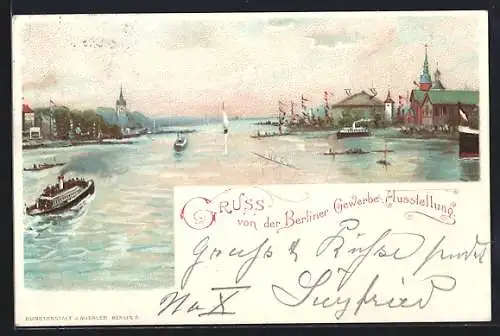 GRUSS
von der Berliner Gewerbe-Ausstellung.
Gruss & Küsse sendet
No X Siegfried
KUNSTANSTALT J. MIESLER, BERLIN, S.